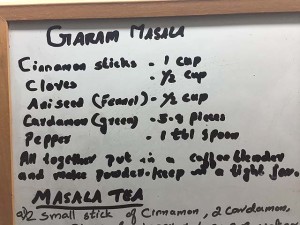 GARAM MASALA
Cinnamon sticks - 1 cup
Cloves - 1/2 cup
Aniseed (Fennel) - 1/2 cup
Cardamon (green) - 5-8 pieces
Pepper - 1 tbl spoon
All together put in a coffee blender
and make powder. keep in a tight jar.
MASALA TEA
1/2 small stick of Cinnamon, 2 cardamon,